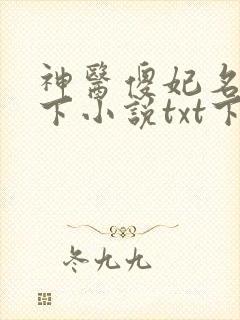 神醫傻妃名
下小說txt下
冬九九